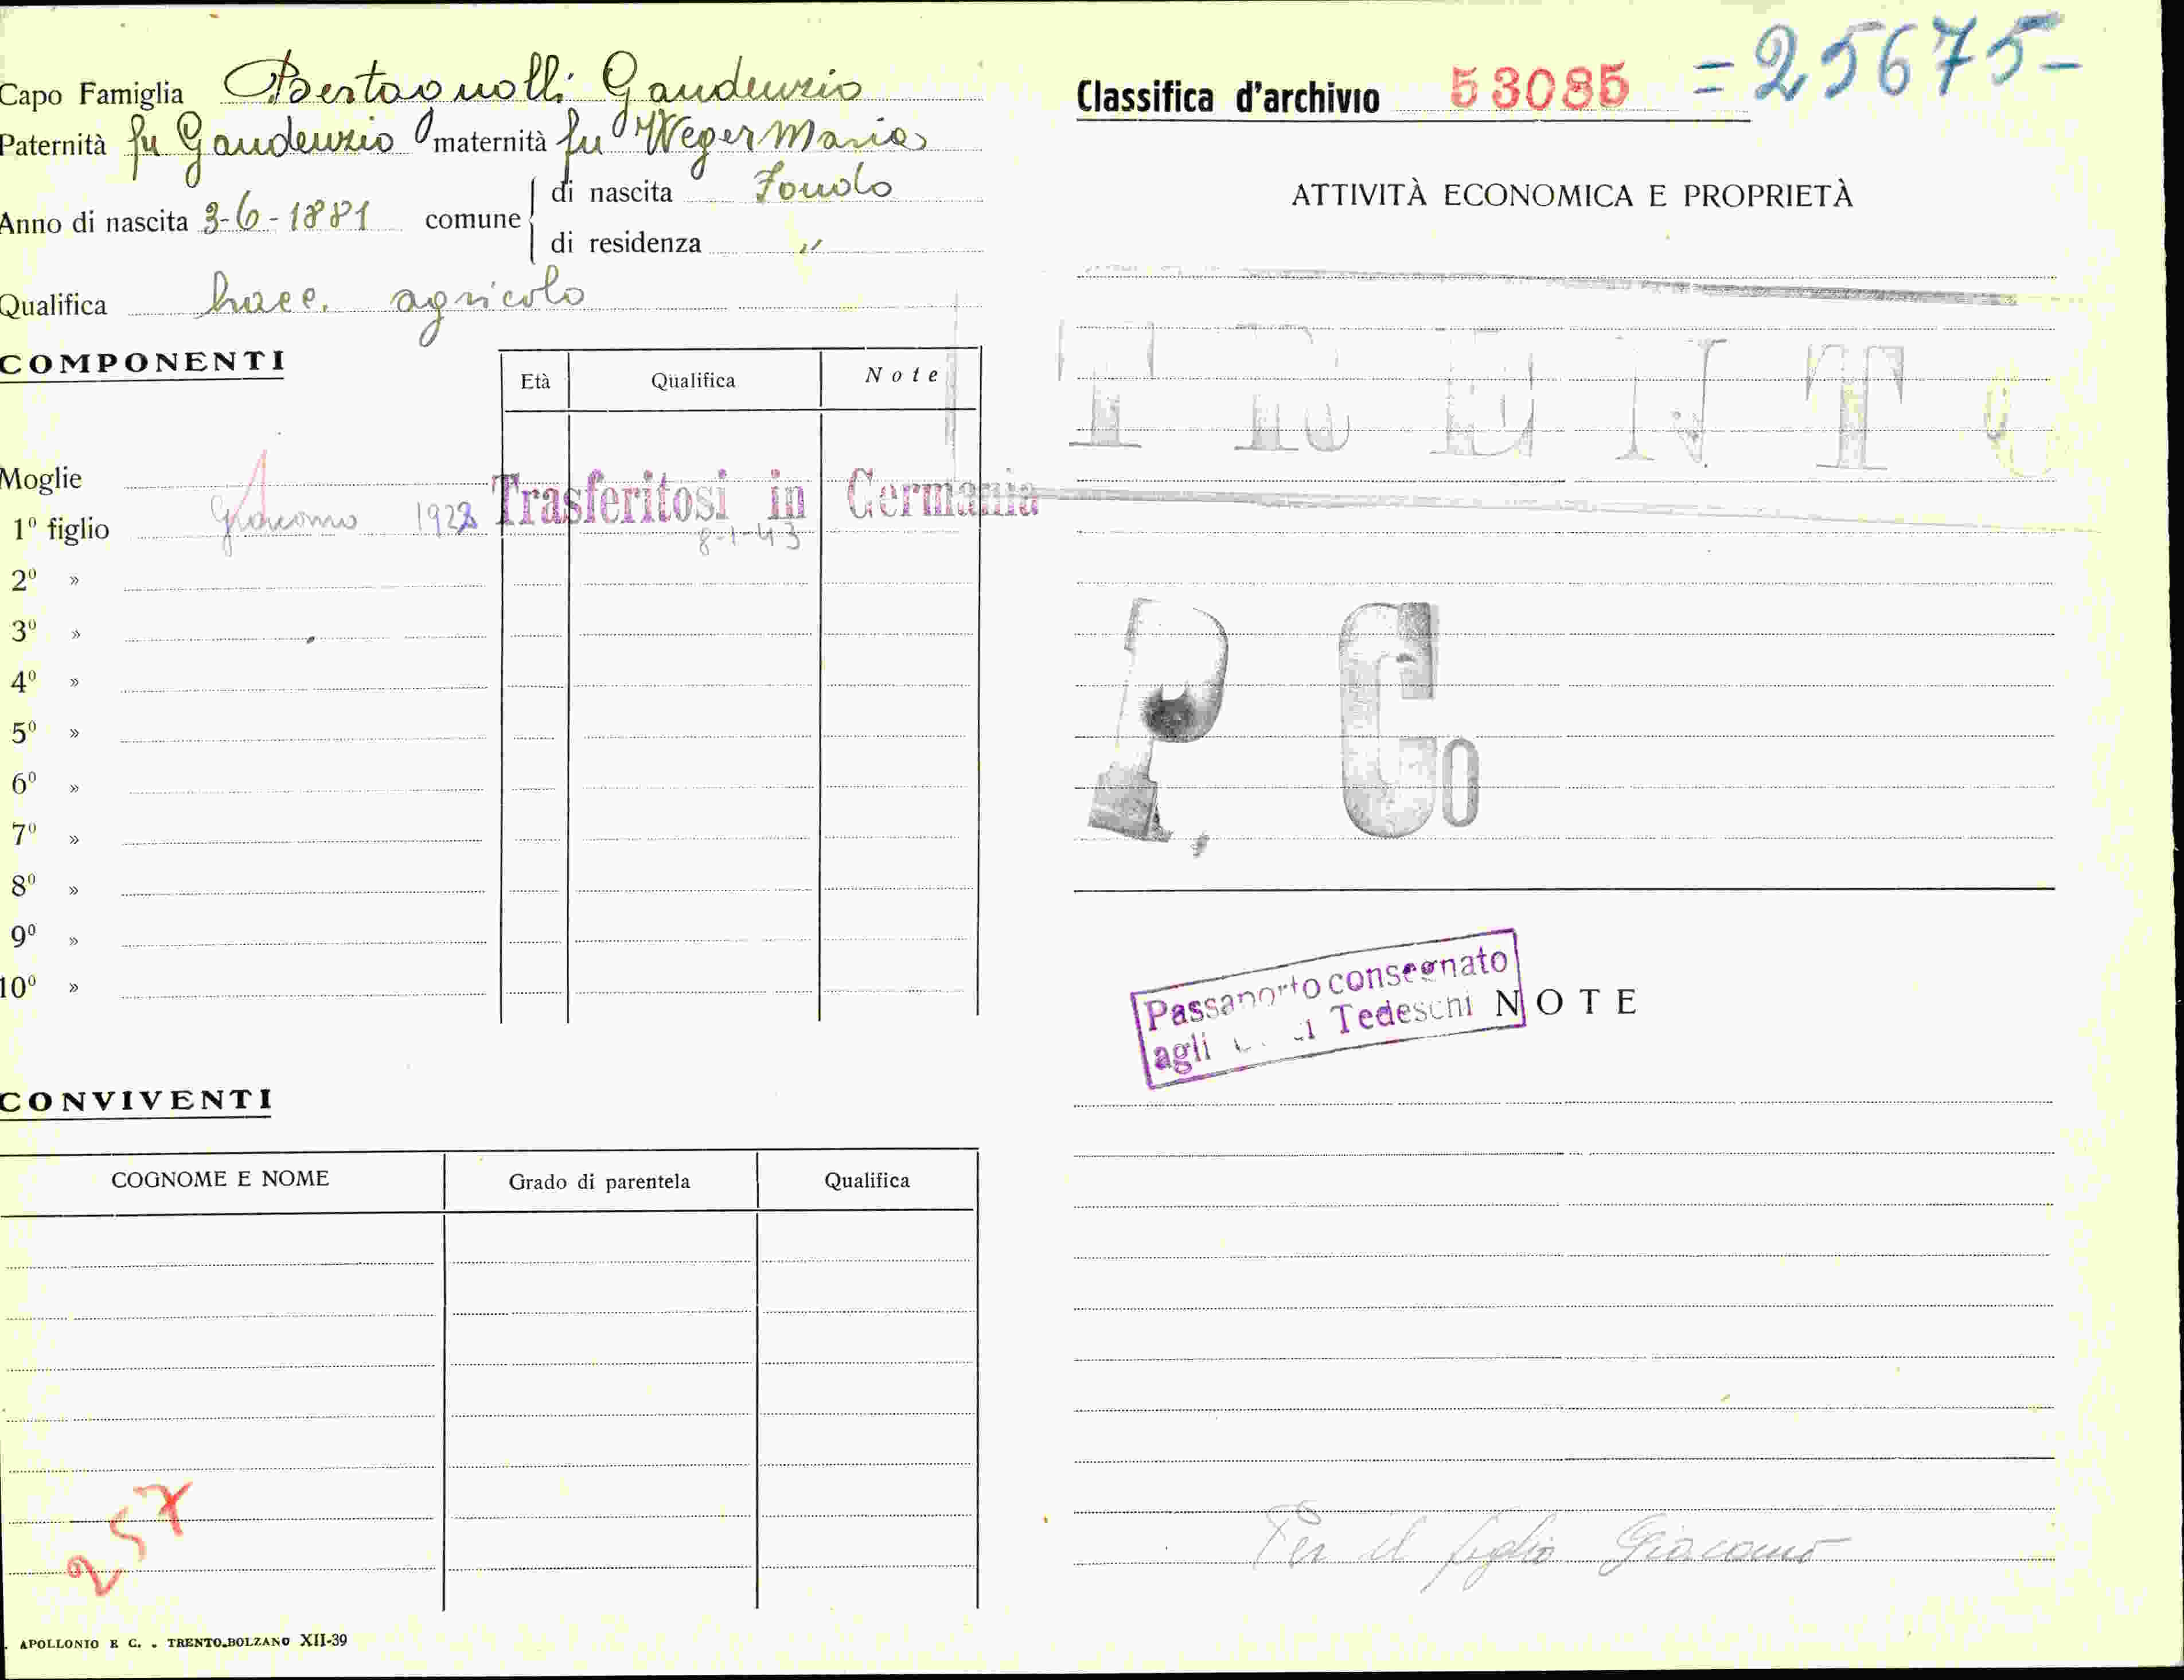 Capo Famiglia Bertagnolli Gaudenzio
Paternità fu Gaudenzio maternità fu Weger Maria
Anno di nascita 3-6-1881 comune
di nascita Fondo
di residenza "
Qualifica bracc. agricolo
COMPONENTI
Età Qualifica Note
Moglie
1º figlio Giacomo 1922 Trasferitosi in Germania
8-1-43
2º »
3º »
4º »
5º »
6º »
7º »
8º »
9º »
10º »
CONVIVENTI
COGNOME E NOME Grado di parentela Qualifica
257
APOLLONIO E C. . TRENTO-BOLZANO XII-39
Classifica d'archivio 53085 =25675-
ATTIVITÀ ECONOMICA E PROPRIETÀ
TRENTO
P. Co
Passaporto consegnato
agli Tedeschi
NOTE
Per il figlio Giacomo